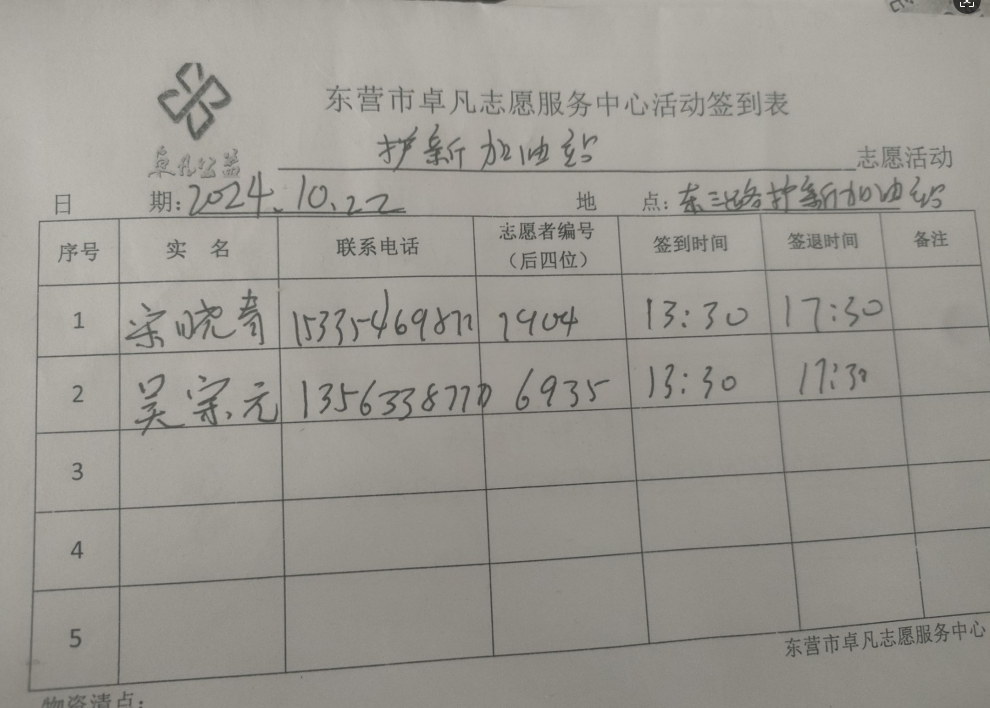 东营市卓凡志愿服务中心活动签到表
卓凡公益
护新加油站 志愿活动
日 期: 2024.10.22 地 点: 东三路护新加油站
序号 实 名 联系电话 志愿者编号（后四位） 签到时间 签退时间 备注
1 宋晓青 1904 13:30 17:30
2 吴宗元 6935 13:30 17:30
3
4
5
东营市卓凡志愿服务中心
物资清点: